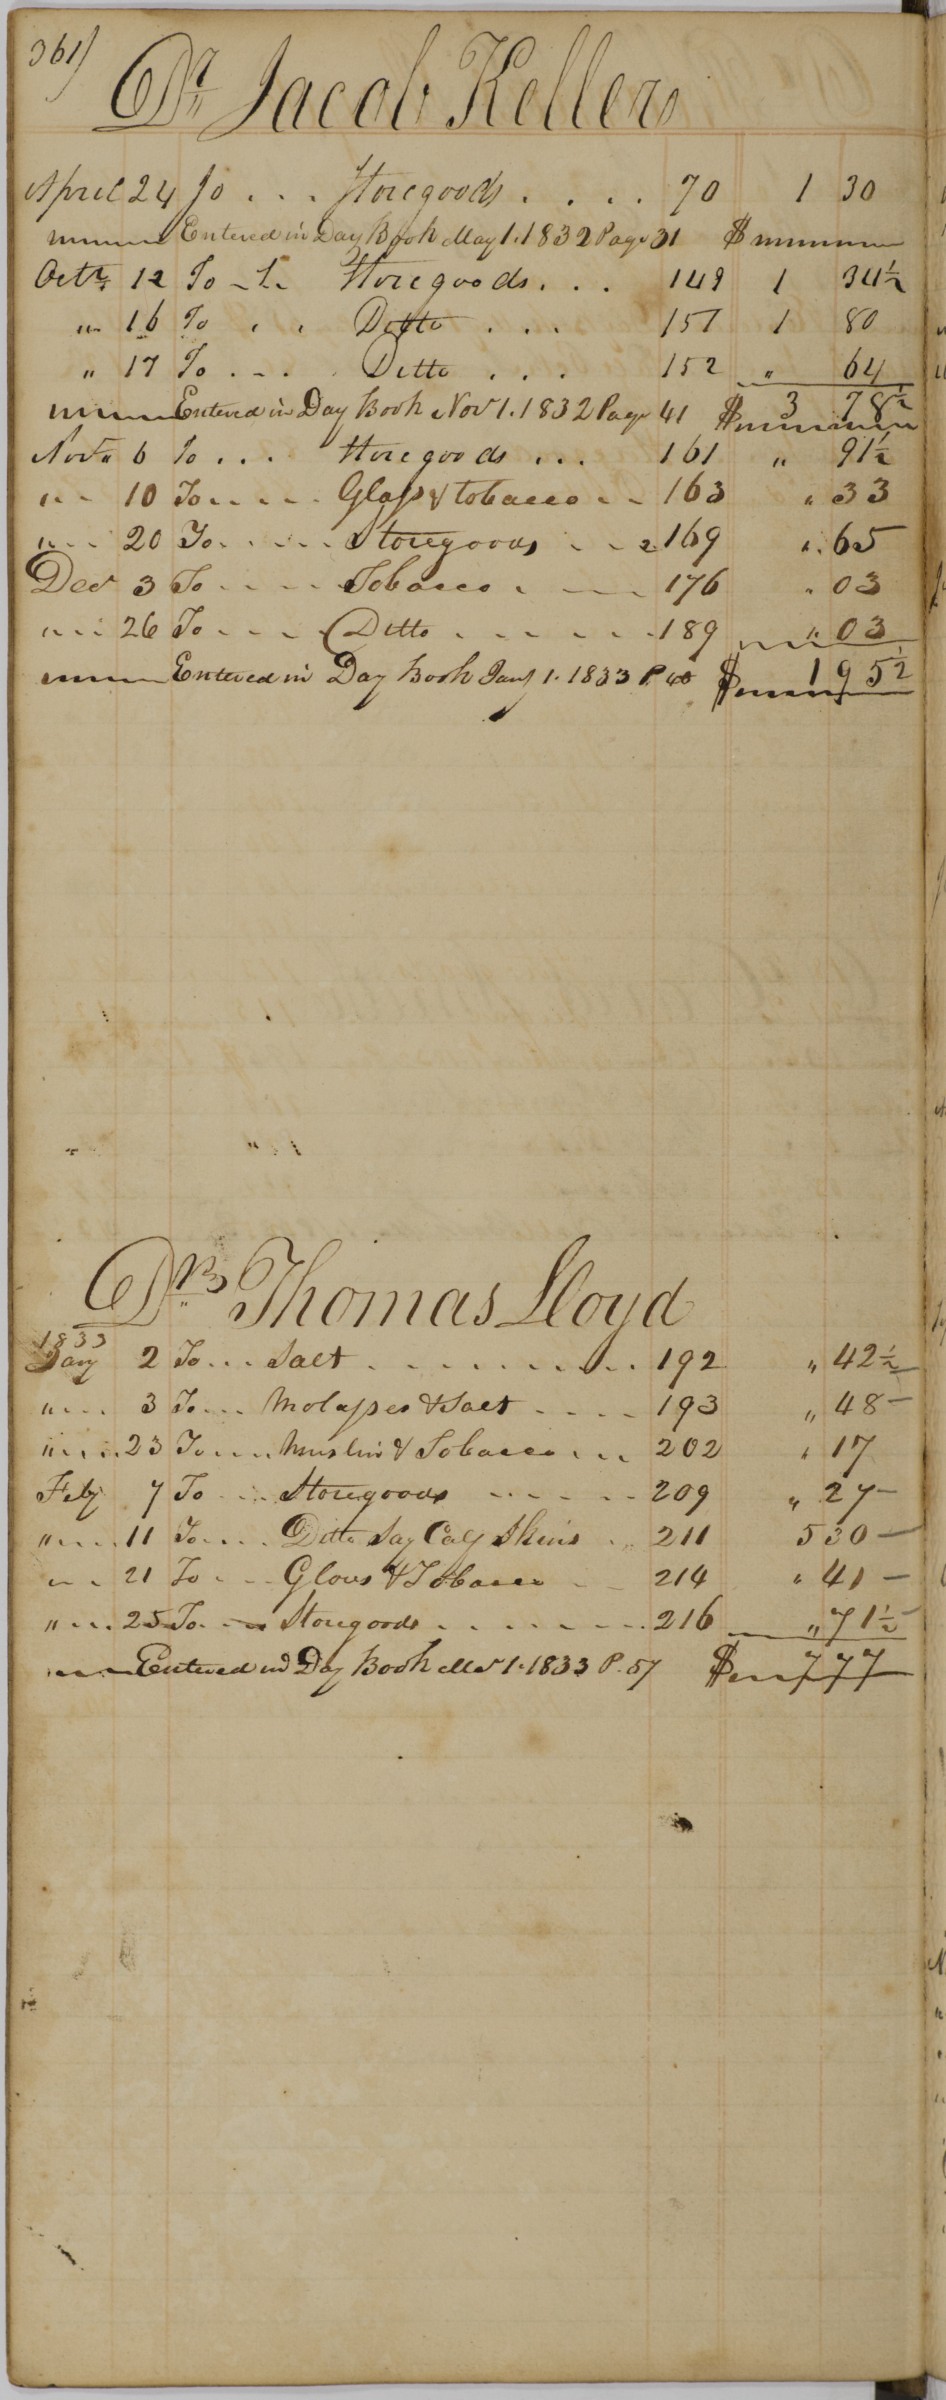 361)
Dr Jacob Keller
April 24 To . . . Storegoods . . . . 70 1 30
Entered in Day Book May 1. 1832 Page 31 $
Octr 12 To - 1. Storegoods . . . 149 1 34½
" 16 To . . Ditto . . . 151 1 80
" 17 To . - . Ditto . . . 152 " 64
Entered in Day Book Nov 1. 1832 Page 41 $ 3 78½
Nov " 6 To . . . Storegoods . . . 161 " 91½
" 10 To . . . . Glass & tobacco . . 163 " 33
" 20 To . . . . Storegoods . . 169 " 65
Dec 3 To . . . . Tobacco . . . 176 " 03
" 26 To . . . . Ditto . . . . . . 189 " 03
Entered in Day Book Jany 1. 1833 P. 48 $ 1 95½
Dr Thomas Lloyd
1833
Jany 2 To . . . Salt . . . . . . . . . 192 " 42½
" 3 To . . . Molasses & Salt . . . . 193 " 48
" 23 To . . . Muslin & Tobacco . . . 202 " 17
Feby 7 To . . . Storegoods . . . . . 209 " 27
" 11 To . . . Ditto Say Calf Skins . . 211 5 30
" 21 To . . . Gloves & Tobacco . . 214 " 41
" 25 To . . . Storegoods . . . . . . . 216 " 71½
Entered in Day Book Mar 1. 1833 P. 57 $ 7 77